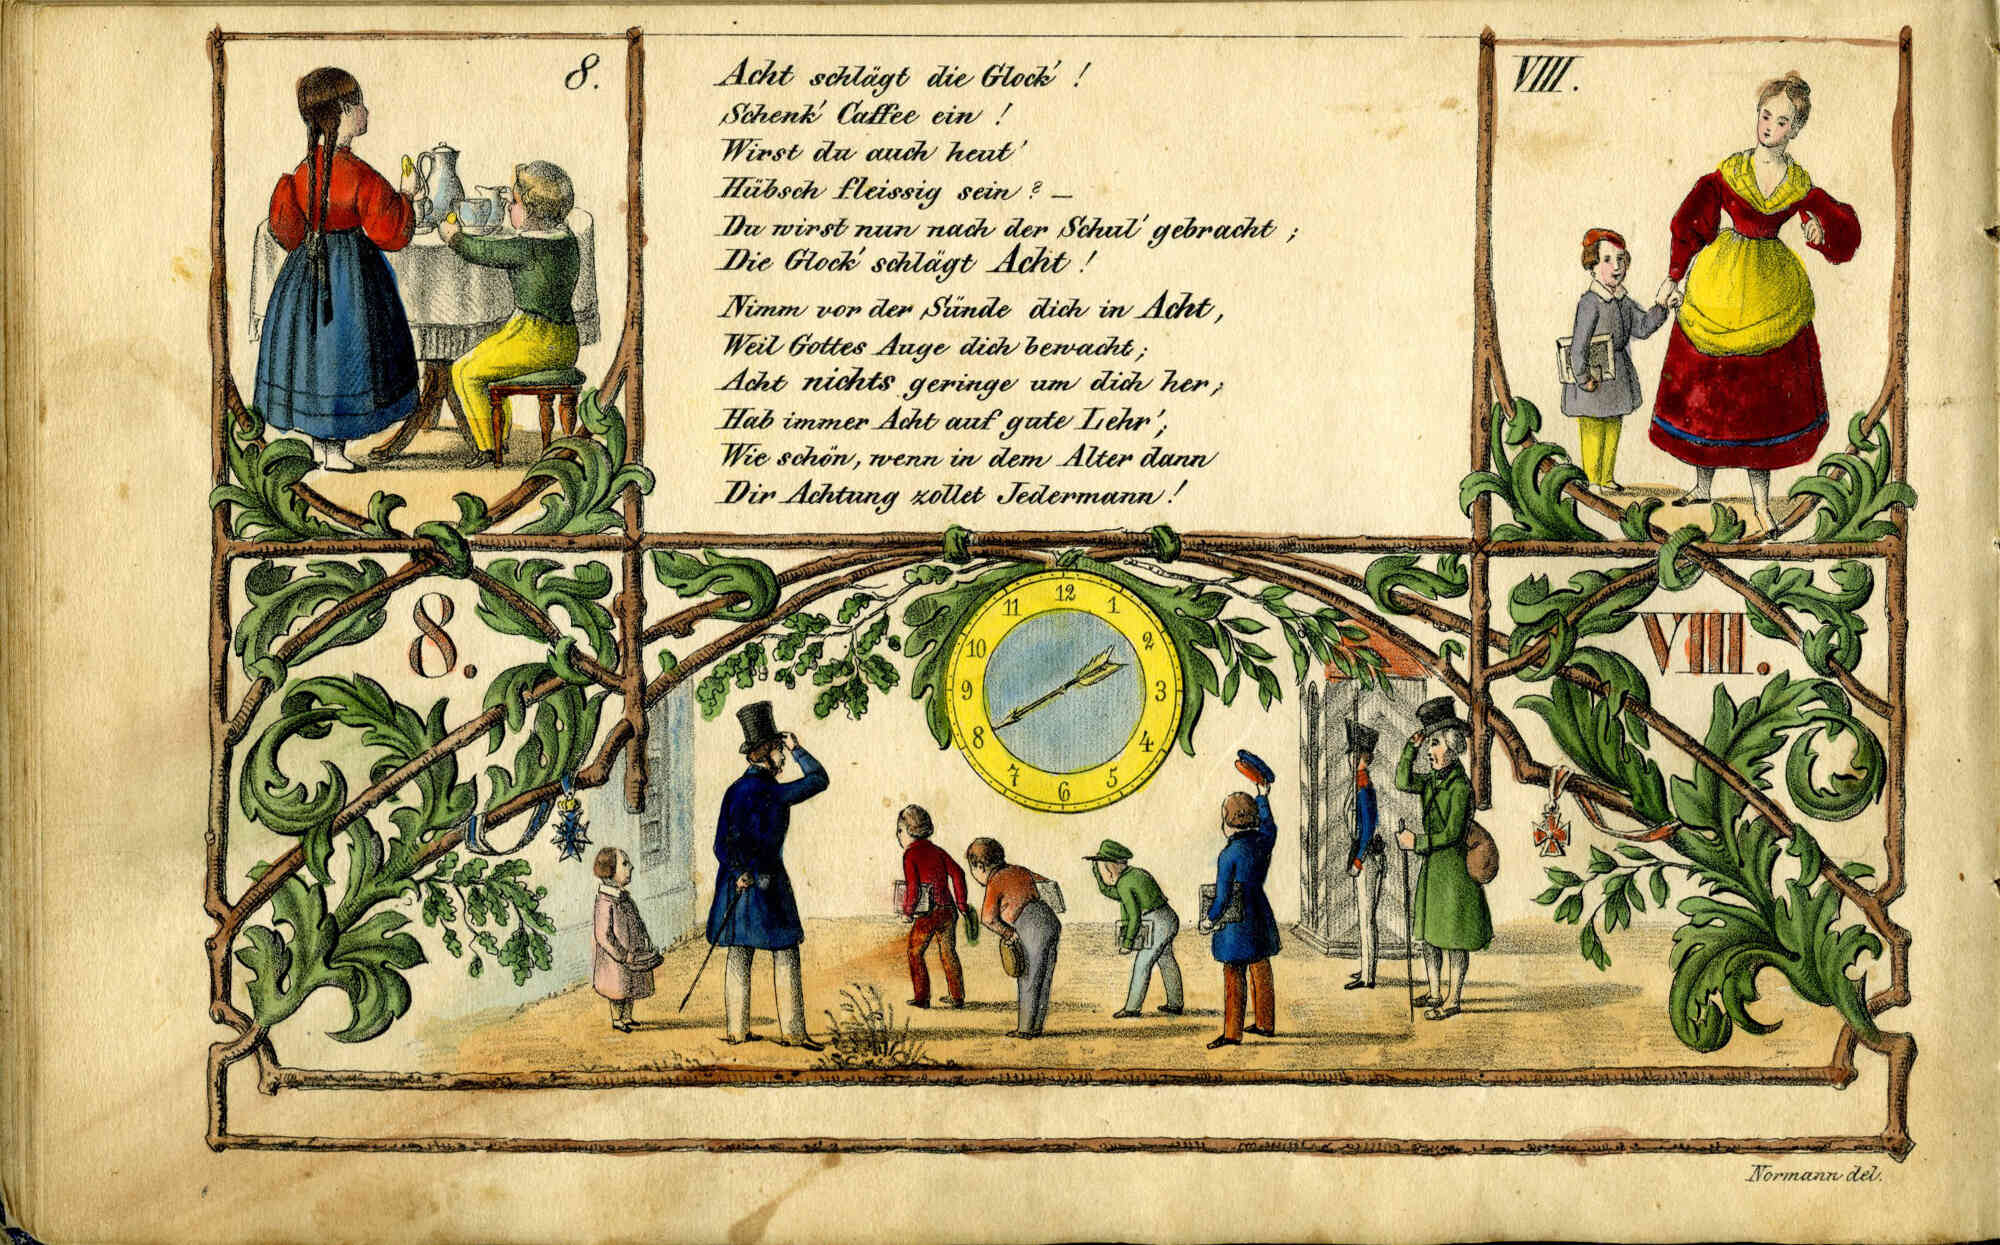 8.
Acht schlägt die Glock' !
Schenk' Caffee ein !
Wirst du auch heut'
Hübsch fleissig sein ? —
Du wirst nun nach der Schul' gebracht ;
Die Glock' schlägt Acht !
Nimm vor der Sünde dich in Acht,
Weil Gottes Auge dich bewacht ;
Acht nichts geringe um dich her ;
Hab immer Acht auf gute Lehr' ;
Wie schön, wenn in dem Alter dann
Dir Achtung zollet Jedermann !
VIII.
8.
12
1
2
3
4
5
6
7
8
9
10
11
VIII.
Normann del.